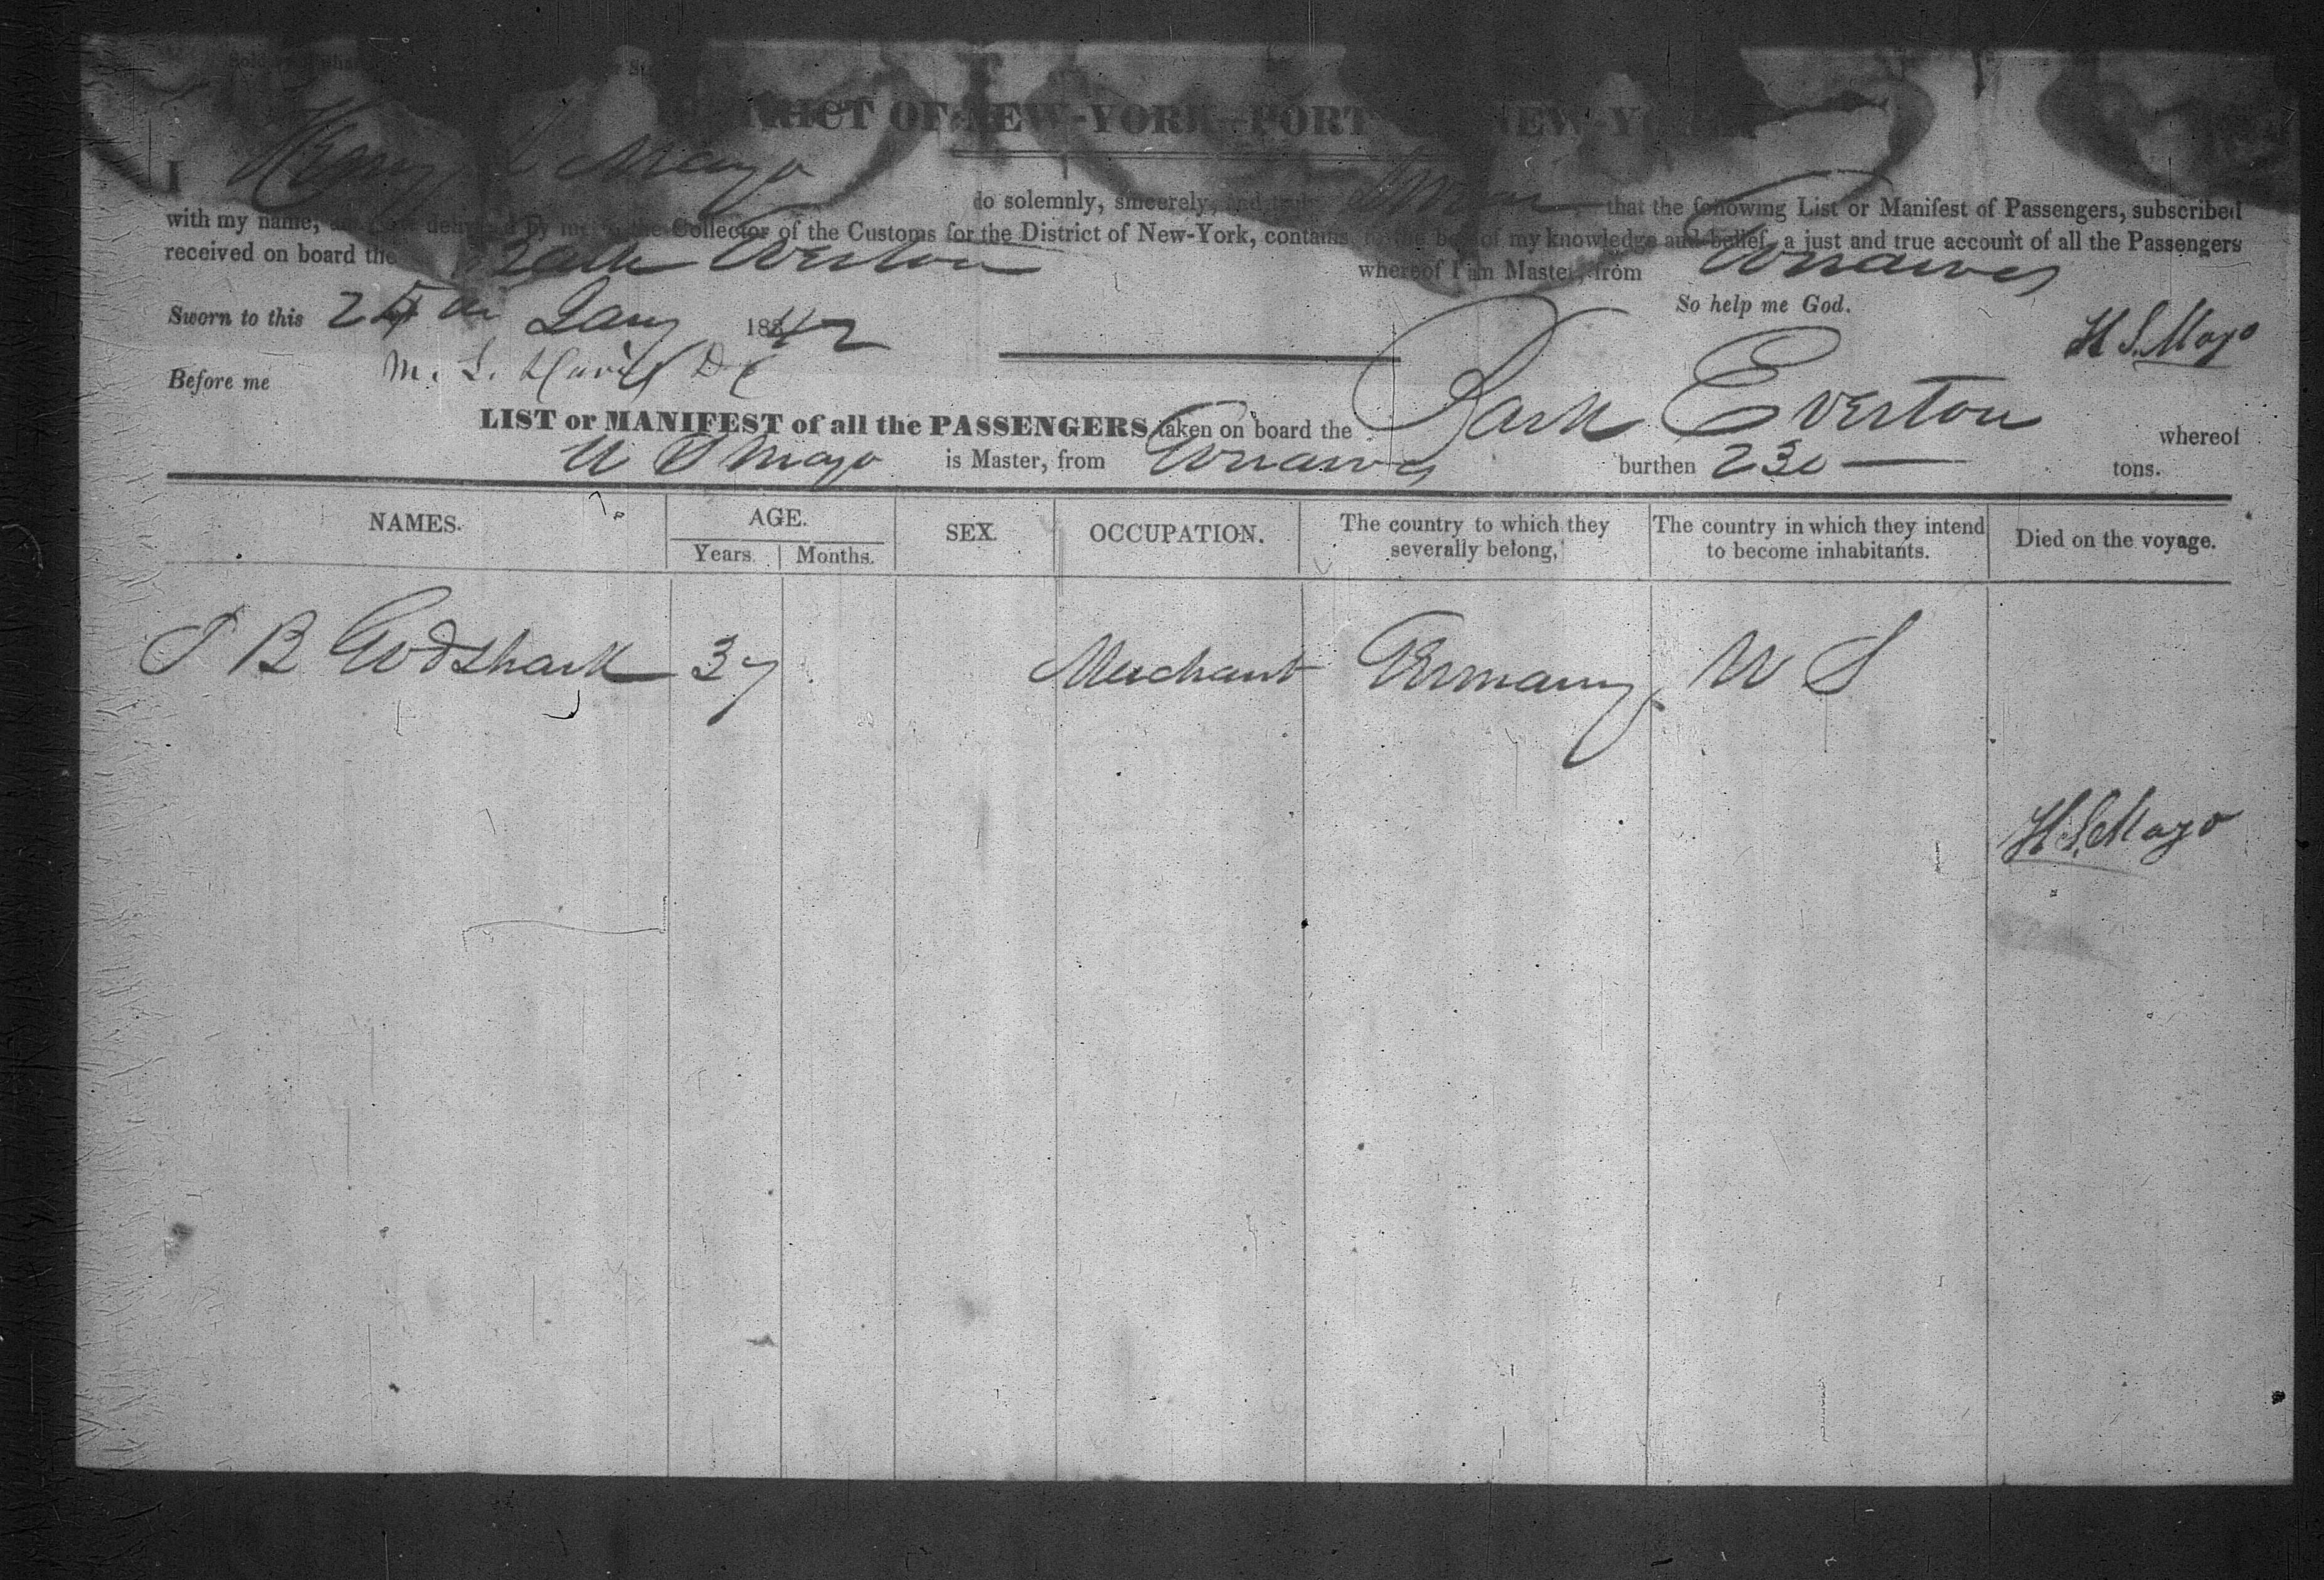 DISTRICT OF NEW-YORK—PORT OF NEW-YORK
I Henry S Mayo do solemnly, sincerely, and truly swear that the following List or Manifest of Passengers, subscribed
with my name, and now delivered by me to the Collector of the Customs for the District of New-York, contains, to the best of my knowledge and belief, a just and true account of all the Passengers
received on board the Bark Everton whereof I am Master, from Gonaives
Sworn to this 25th Jany 1842 So help me God.
H S. Mayo
Before me M. L. Davis D C
LIST or MANIFEST of all the PASSENGERS taken on board the Bark Everton whereof
H S Mayo is Master, from Gonaives burthen 230 tons.
NAMES. AGE. SEX. OCCUPATION. The country to which they severally belong, The country in which they intend to become inhabitants. Died on the voyage.
Years. Months.
B Godshark 37 Merchant Germany U S
H. S. Mayo